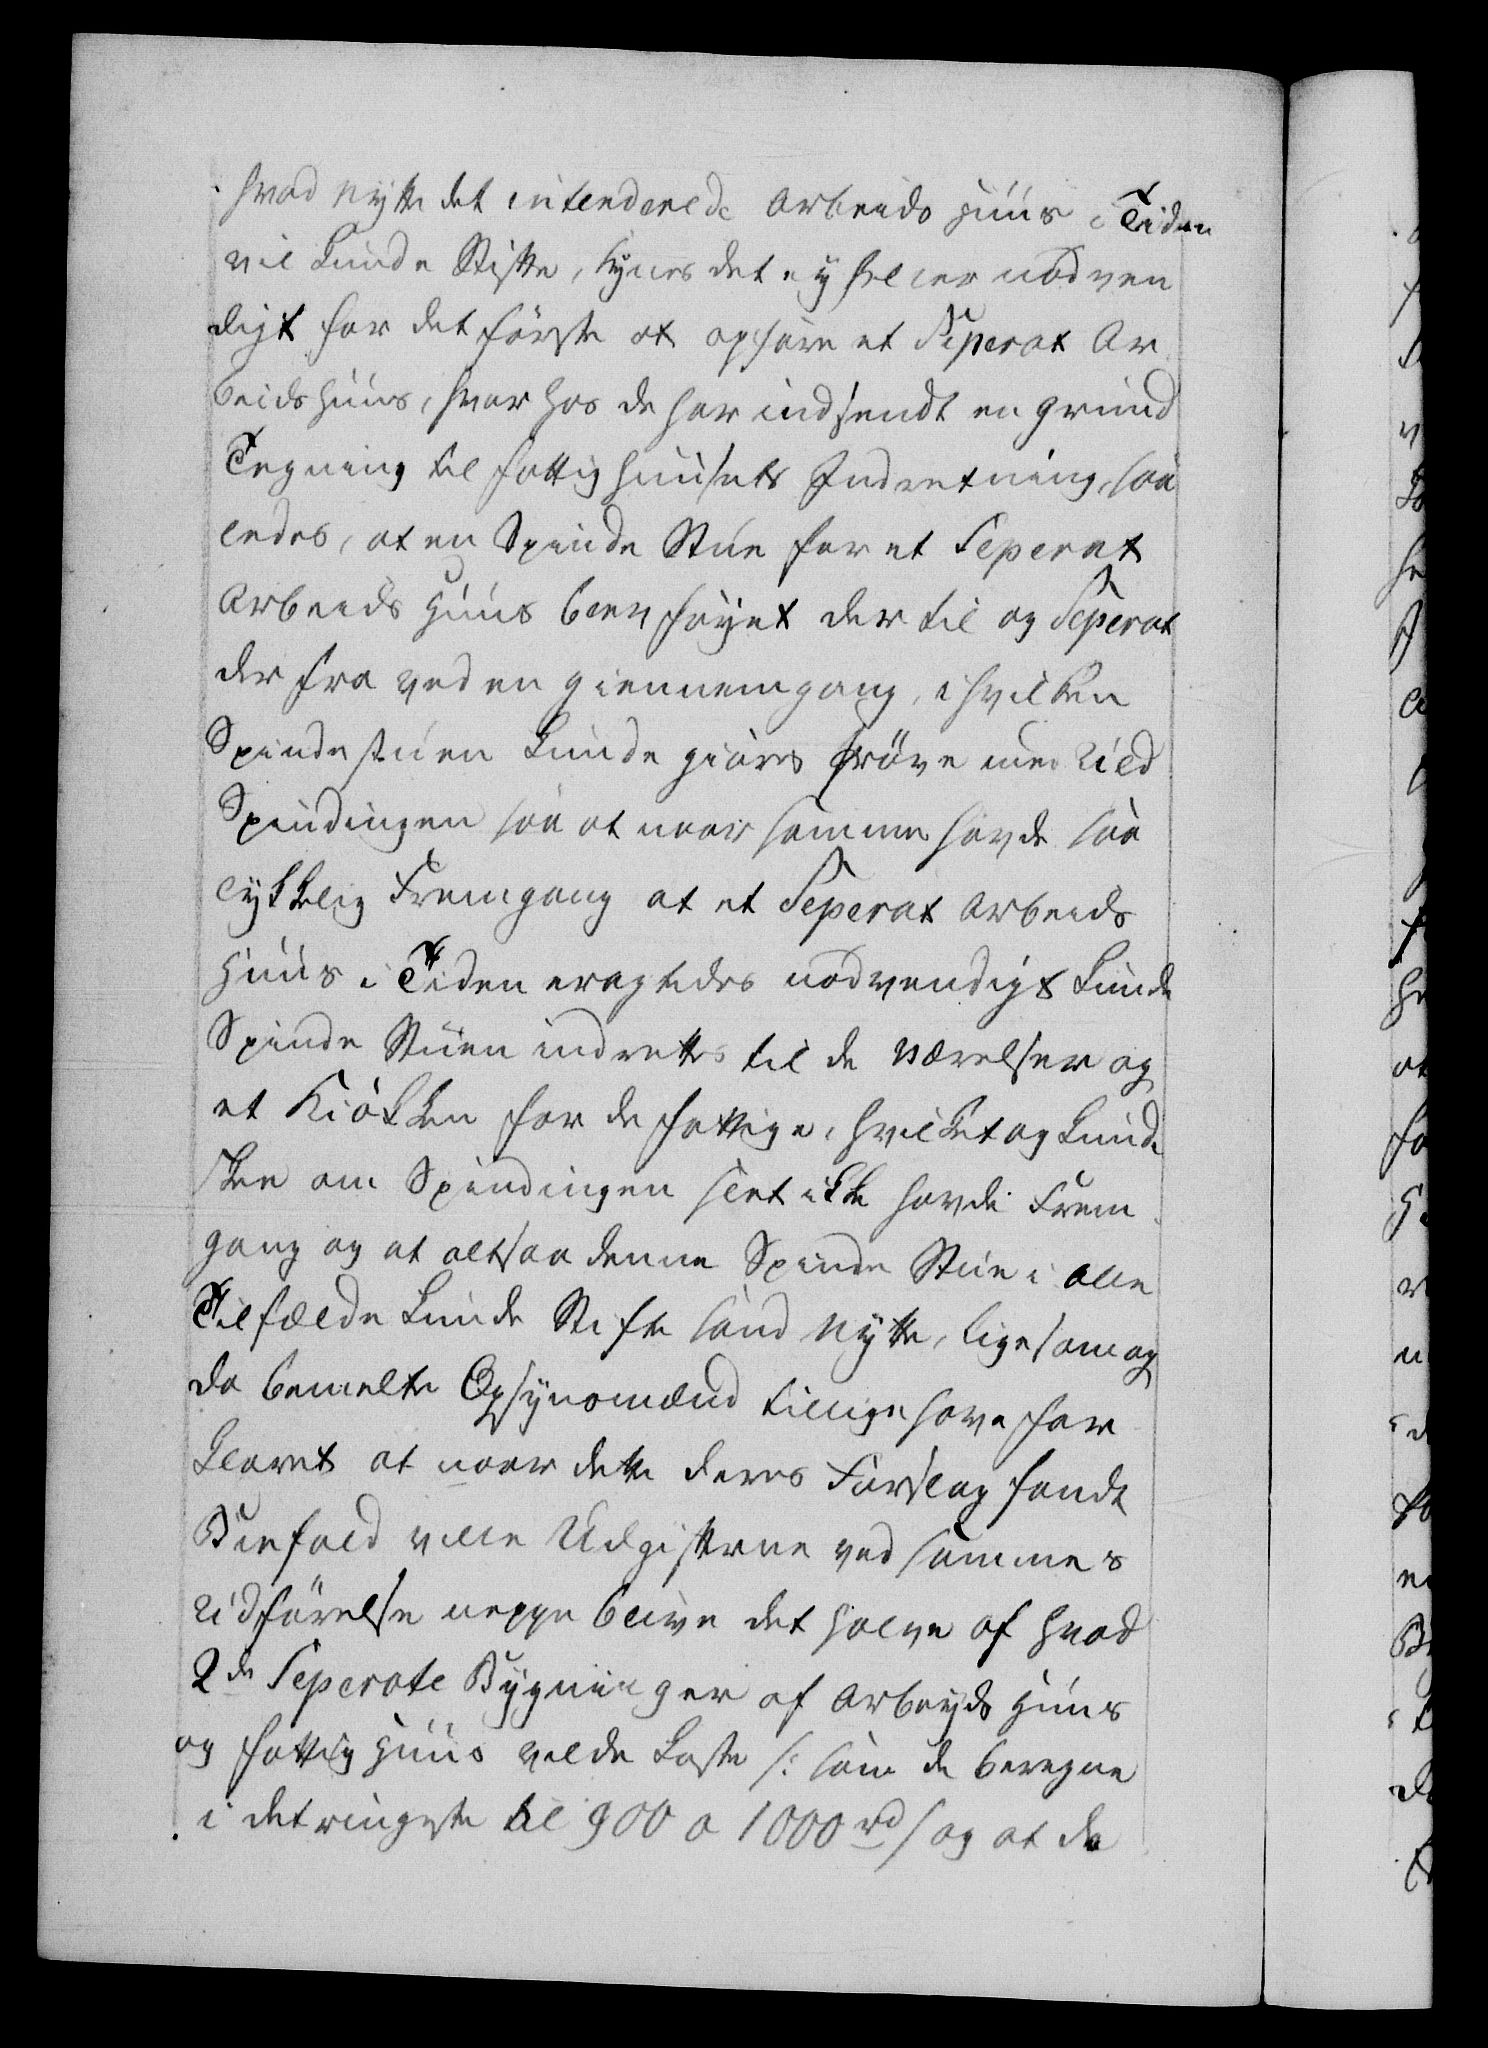 hvad Nytte det intenderede Arbeids Huus i Tiden
vil kunde stifte, synes det ey heller nødven
digt for det første at opføre et Seperat Ar
beidshuus, hvorhos de har indsendt en Grund
Tegning til Fattighuusets Indretning, saa
ledes, at en Spinde Stue for et Seperat
Arbeids Huus blev føyet dertil og Seperat
derfra ved en Giennemgang, i hvilken
Spindestuen kunde giøres Prøve med Uld
Spindingen saa at naar samme havde saa
lykkelig Fremgang at et Seperat Arbeids
Huus i Tiden eragtedes nødvendigt kunde
Spinde Stuen indrettes til de Værelser og
et Kiøkken for de fattige, hvilket og kunde
skee om Spindingen slet ikke havde Frem
gang og at altsaa denne Spinde Stue i alle
Tilfælde kunde stifte sand Nytte, ligesom og
da bemelte Opsynsmænd tillige have for
klaret at naar dette deres Forslag fandt
Biefald ville Udgifterne ved sammes
Udførelse neppe blive det halve af hvad
2de Seperate Bygninger af Arbeyds Huus
og Fattig Huus vilde koste /: som de beregne
i det ringeste til 900 a 1000 rd / og at de